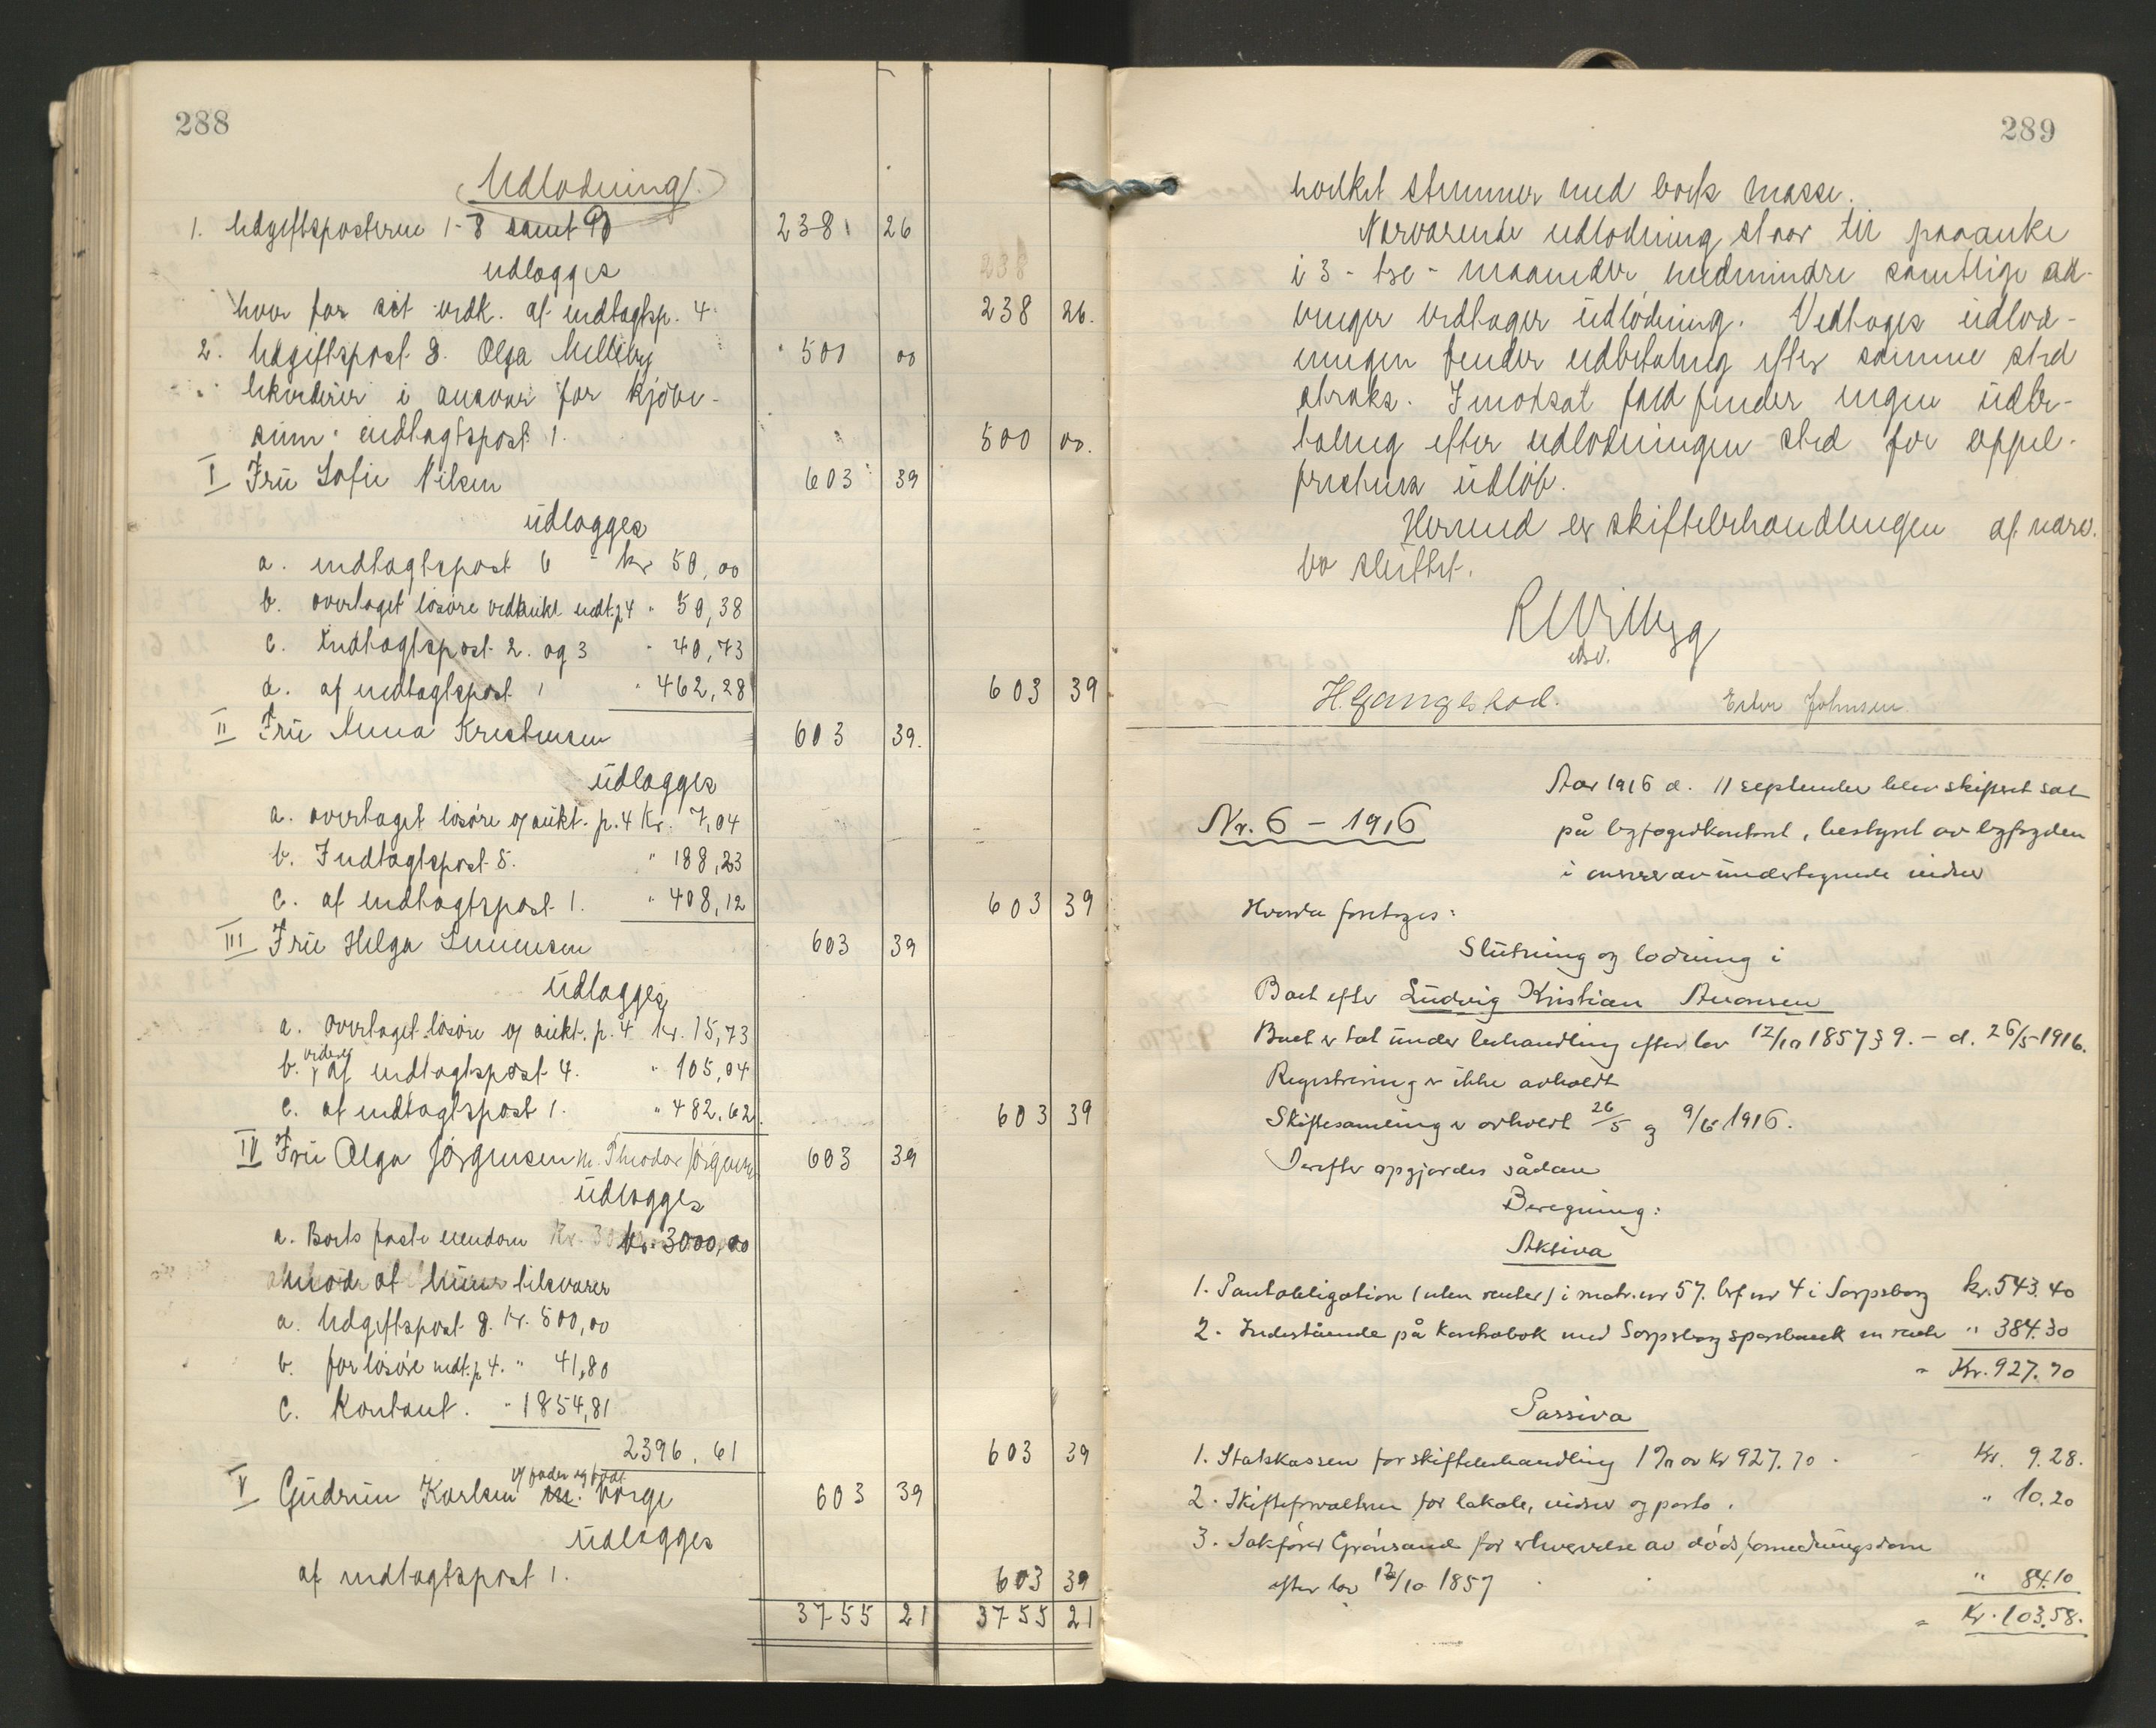 288
Udlodning.
1. Udgiftsposterne 1-8 samt 9 238 26
udlægges
hver for sit vedk. af indtægtsp. 4. 238 26.
2. Udgiftspost 8. Olga Melleby 500 00
likviderer i ansvar for kjøbe-
sum. indtægtspost 1. 500 00.
I Frü Sofie Nilsen 603 39
üdlægges
a. indtægtspost 6 - kr 50,00
b. overtaget løsøre vedkükt. indt.p 4 " 50,38
c. Indtægtspost 2. og 3 " 40,73
d. af indtægtspost 1 " 462,28 603 39
II Frü Anna Kristensen 603 39.
üdlægges
a. overtaget løsøre og aükt. p. 4 Kr. 7,04
b. Indtægtspost 5. " 188,23
c. af indtægtspost 1. " 408,12 603 39
III Frü Helga Simensen 603 39
üdlægges
a. overtaget løsøre og aükt. p. 4 kr. 15,73
b. videre af indtægtspost 4. " 105,04
c. af indtægtspost 1. " 482,62 603 39
IV Frü Olga Jørgensen m. Theodor Jørgensen 603 39
üdlægges
a. Boets faste eiendom kr. 3000,00
imod at hün tilsvarer
a. Udgiftspost 8. kr. 500,00
b. for løsøre indt.p 4. " 41,80
c. Kontant. " 1854,81
2396.61 603 39
V Güdrün Karlsen værge 603 39
üdlægges
af indtægtspost 1. 603 39
3755 21 3755 21
289
hvilket stemmer med boets masse.
Nærværende udlodning staar til paaanke
i 3 - tre - maaneder, medmindre samtlige ar-
vinger vedtager üdlodning. Vedtages üdlod-
ningen finder udbetaling efter samme sted
straks. I modsat fald finder ingen üdbe-
taling efter udlodningen sted før appel-
fristens üdløb.
Hermed er skiftebehandlingen af nærv.
bo slüttet.
H. Gangestad. Ester Johnsen.
Aar 1916 d. 11 september blev skifteret sat
Nr. 6 - 1916
på byfogedkontoret, bestyret av byfogden
i overvær av ündertegnede vidner
Hvorda foretoges:
Slütning og lodning i
Boet efter Lüdvig Kristian Aronsen
Boet er tat ünder behandling efter lov 12/10 1857 § 9. - d. 26/5 1916.
Registrering er ikke avholdt
Skiftesamling er avholdt 26/5 og 9/6 1916.
Derefter opgjordes sådan
Beregning:
Aktiva
1. Pantobligation (uten renter) i matr.nr 57. brf nr 4 i Sarpsborg kr. 543.40
2. Indestående på Kontrabok med Sarpsborg sparebank m renter " 384.30
- Kr. 927.70
Passiva
1. Statskassen for skiftebehandling 1 % av kr 927.70. Kr. 9.28.
2. Skifteforvalteren for lokale, vidner og porto. " 10.20
3. Sakfører Grønsand for erhvervelse av dødsformodningsdom
efter lov 12/10 1857 " 84.10
- Kr. 103.58.